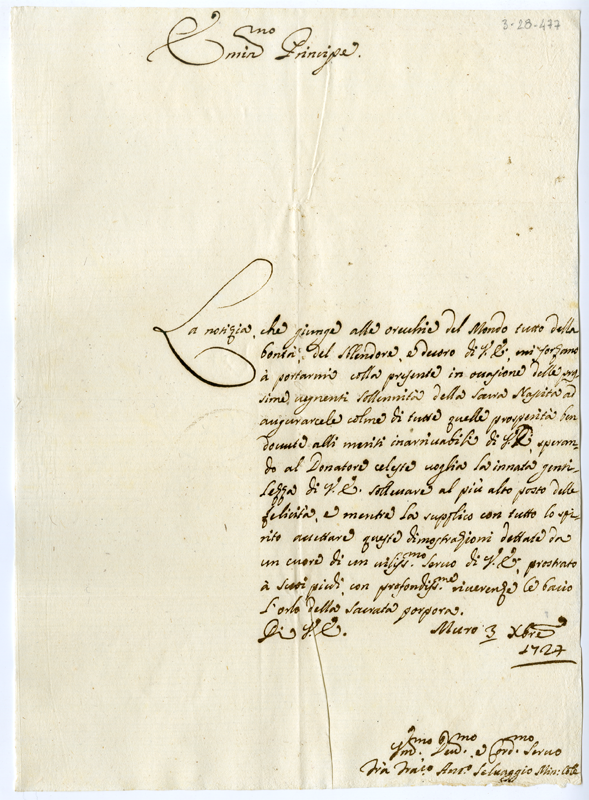 3-28-477
E.mo
min Principe.
La notizia, che giunge alle orecchie del Mondo tutto della
bontà, del splendore, e decoro di V. E. mi forzano
à portarmi colla presente in occasione delle pros
sime vegnenti sollennità della Sacra Natività ad
augurarcele colme di tutte quelle prosperità ben
dovute alli meriti inarrivabili di V. E., speran-
do al Donatore celeste voglia la innata genti-
lezza di V. E. sollevare al più alto posto delle
felicità, e mentre La supplico con tutto lo spi-
rito accettare queste dimostrazioni dettate da
un cuore di un viliss.mo Servo di V. E., prostrato
à suoi piedi, con profondiss.me riverenze Le bacio
l'orlo della Sacrata porpora.
Di V. E. Muro 3 Xbre
1724
Dev. ed Servo
Frà Ant.o Selvaggio Min: